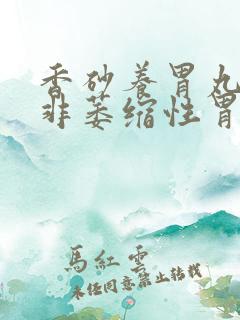 香砂养胃丸
非萎缩性胃
馬紅雲
未经同意禁止转载